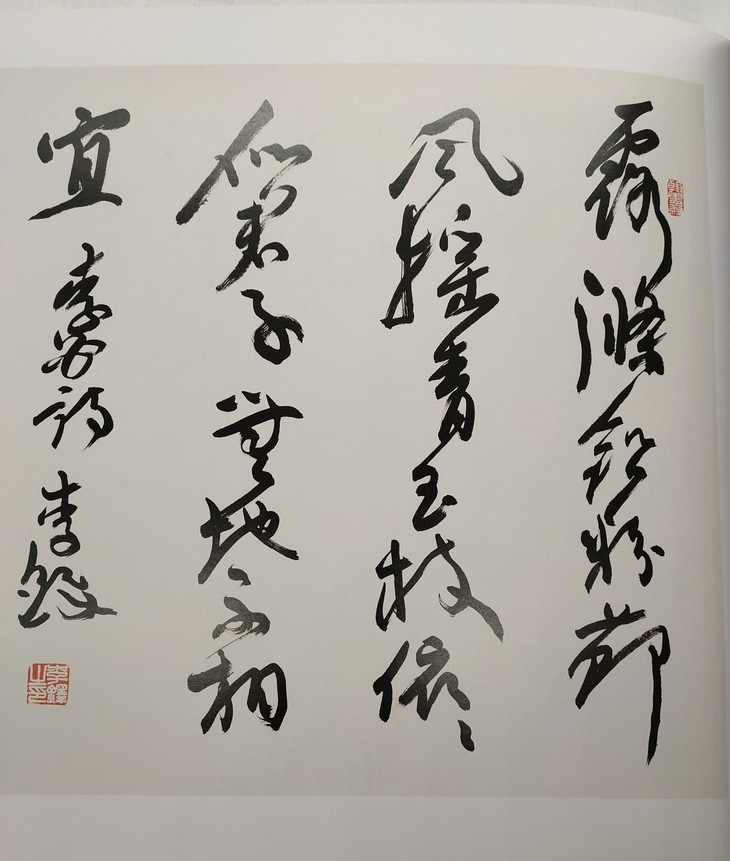 露滌鉛粉節
風搖青玉枝依々
似君子無地不相
宜
詩 李鐸
李鐸之印